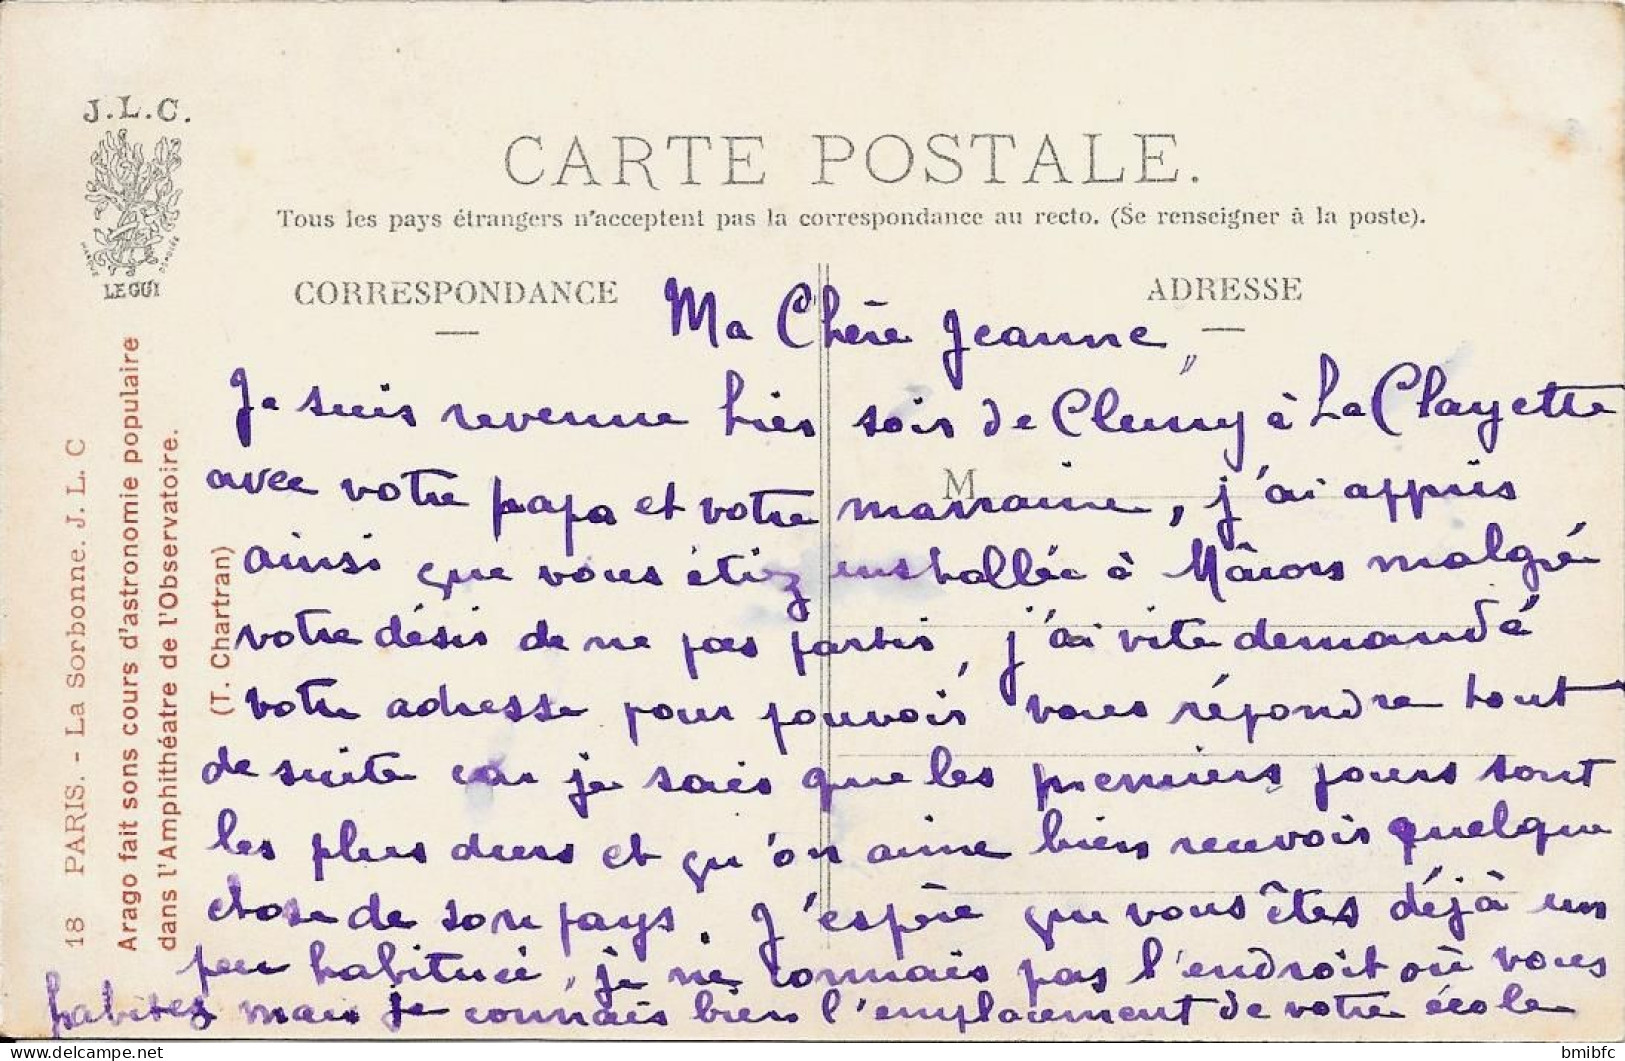 J.L.C.
MARQUE DÉPOSÉE
LE GUI
CARTE POSTALE.
Tous les pays étrangers n'acceptent pas la correspondance au recto. (Se renseigner à la poste).
CORRESPONDANCE
ADRESSE
M
18 PARIS. - La Sorbonne. J. L. C
Arago fait sons cours d'astronomie populaire
dans l'Amphithéatre de l'Observatoire.
(T. Chartran)
Ma Chère Jeanne,
Je suis revenue hier soir de Cluny à La Clayette
avec votre papa et votre marraine, j'ai appris
ainsi que vous étiez installée à Mâcon malgré
votre désir de ne pas partir, j'ai vite demandé
votre adresse pour pouvoir vous répondre tout
de suite car je sais que les premiers jours sont
les plus durs et qu'on aime bien recevoir quelque
chose de son pays. J'espère que vous êtes déjà un
peu habituée, je ne connais pas l'endroit où vous
habitez mais je connais bien l'emplacement de votre école
bmibfc